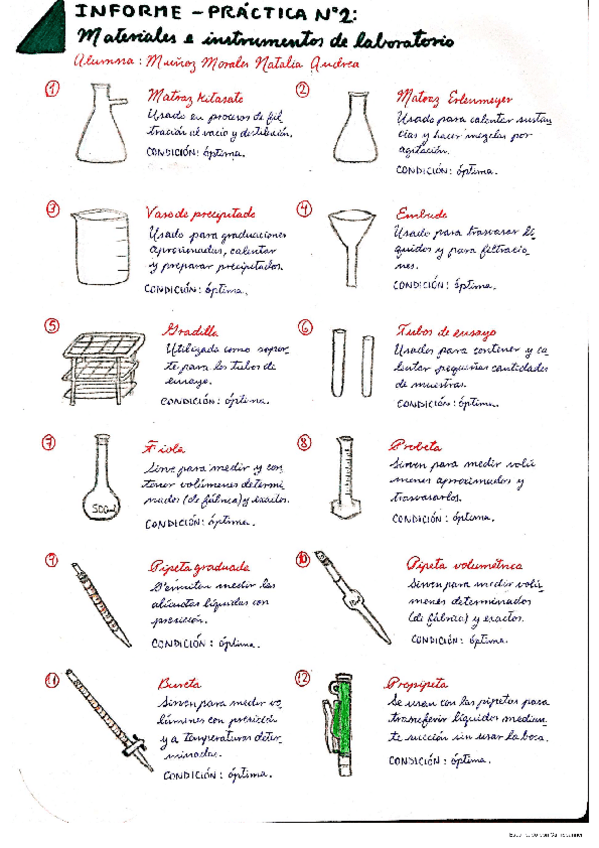 INFORME - PRÁCTICA N°2:
Materiales e instrumentos de laboratorio
Alumna: Muñoz Morales Natalia Andrea
1
Matraz Kitasato
Usado en procesos de fil-
tración al vacío y destilación.
CONDICIÓN: óptima.
2
Matraz Erlenmeyer
Usado para calentar sustan-
cias y hacer mezclas por
agitación.
CONDICIÓN: óptima.
3
Vaso de precipitado
Usado para graduaciones
aproximadas, calentar
y preparar precipitados.
CONDICIÓN: óptima.
4
Embudo
Usado para trasvasar lí-
quidos y para filtracio-
nes.
CONDICIÓN: óptima.
5
Gradilla
Utilizada como sopor-
te para los tubos de
ensayo.
CONDICIÓN: óptima.
6
Tubos de ensayo
Usados para contener y ca-
lentar pequeñas cantidades
de muestras.
CONDICIÓN: óptima.
7
Fiola
Sirve para medir y con-
tener volúmenes determi-
nados (de fábrica) y exactos.
CONDICIÓN: óptima.
500ml
8
Probeta
Sirven para medir volú-
menes aproximados y
trasvasarlos.
CONDICIÓN: óptima.
9
Pipeta graduada
Permiten medir las
alícuotas líquidas con
precisión.
CONDICIÓN: óptima.
10
Pipeta volumétrica
Sirven para medir volú-
menes determinados
(de fábrica) y exactos.
CONDICIÓN: óptima.
11
Bureta
Sirven para medir vo-
lúmenes con precisión
y a temperaturas deter-
minadas.
CONDICIÓN: óptima.
12
Propipeta
Se usan con las pipetas para
transferir líquidos median-
te succión sin usar la boca.
CONDICIÓN: óptima.